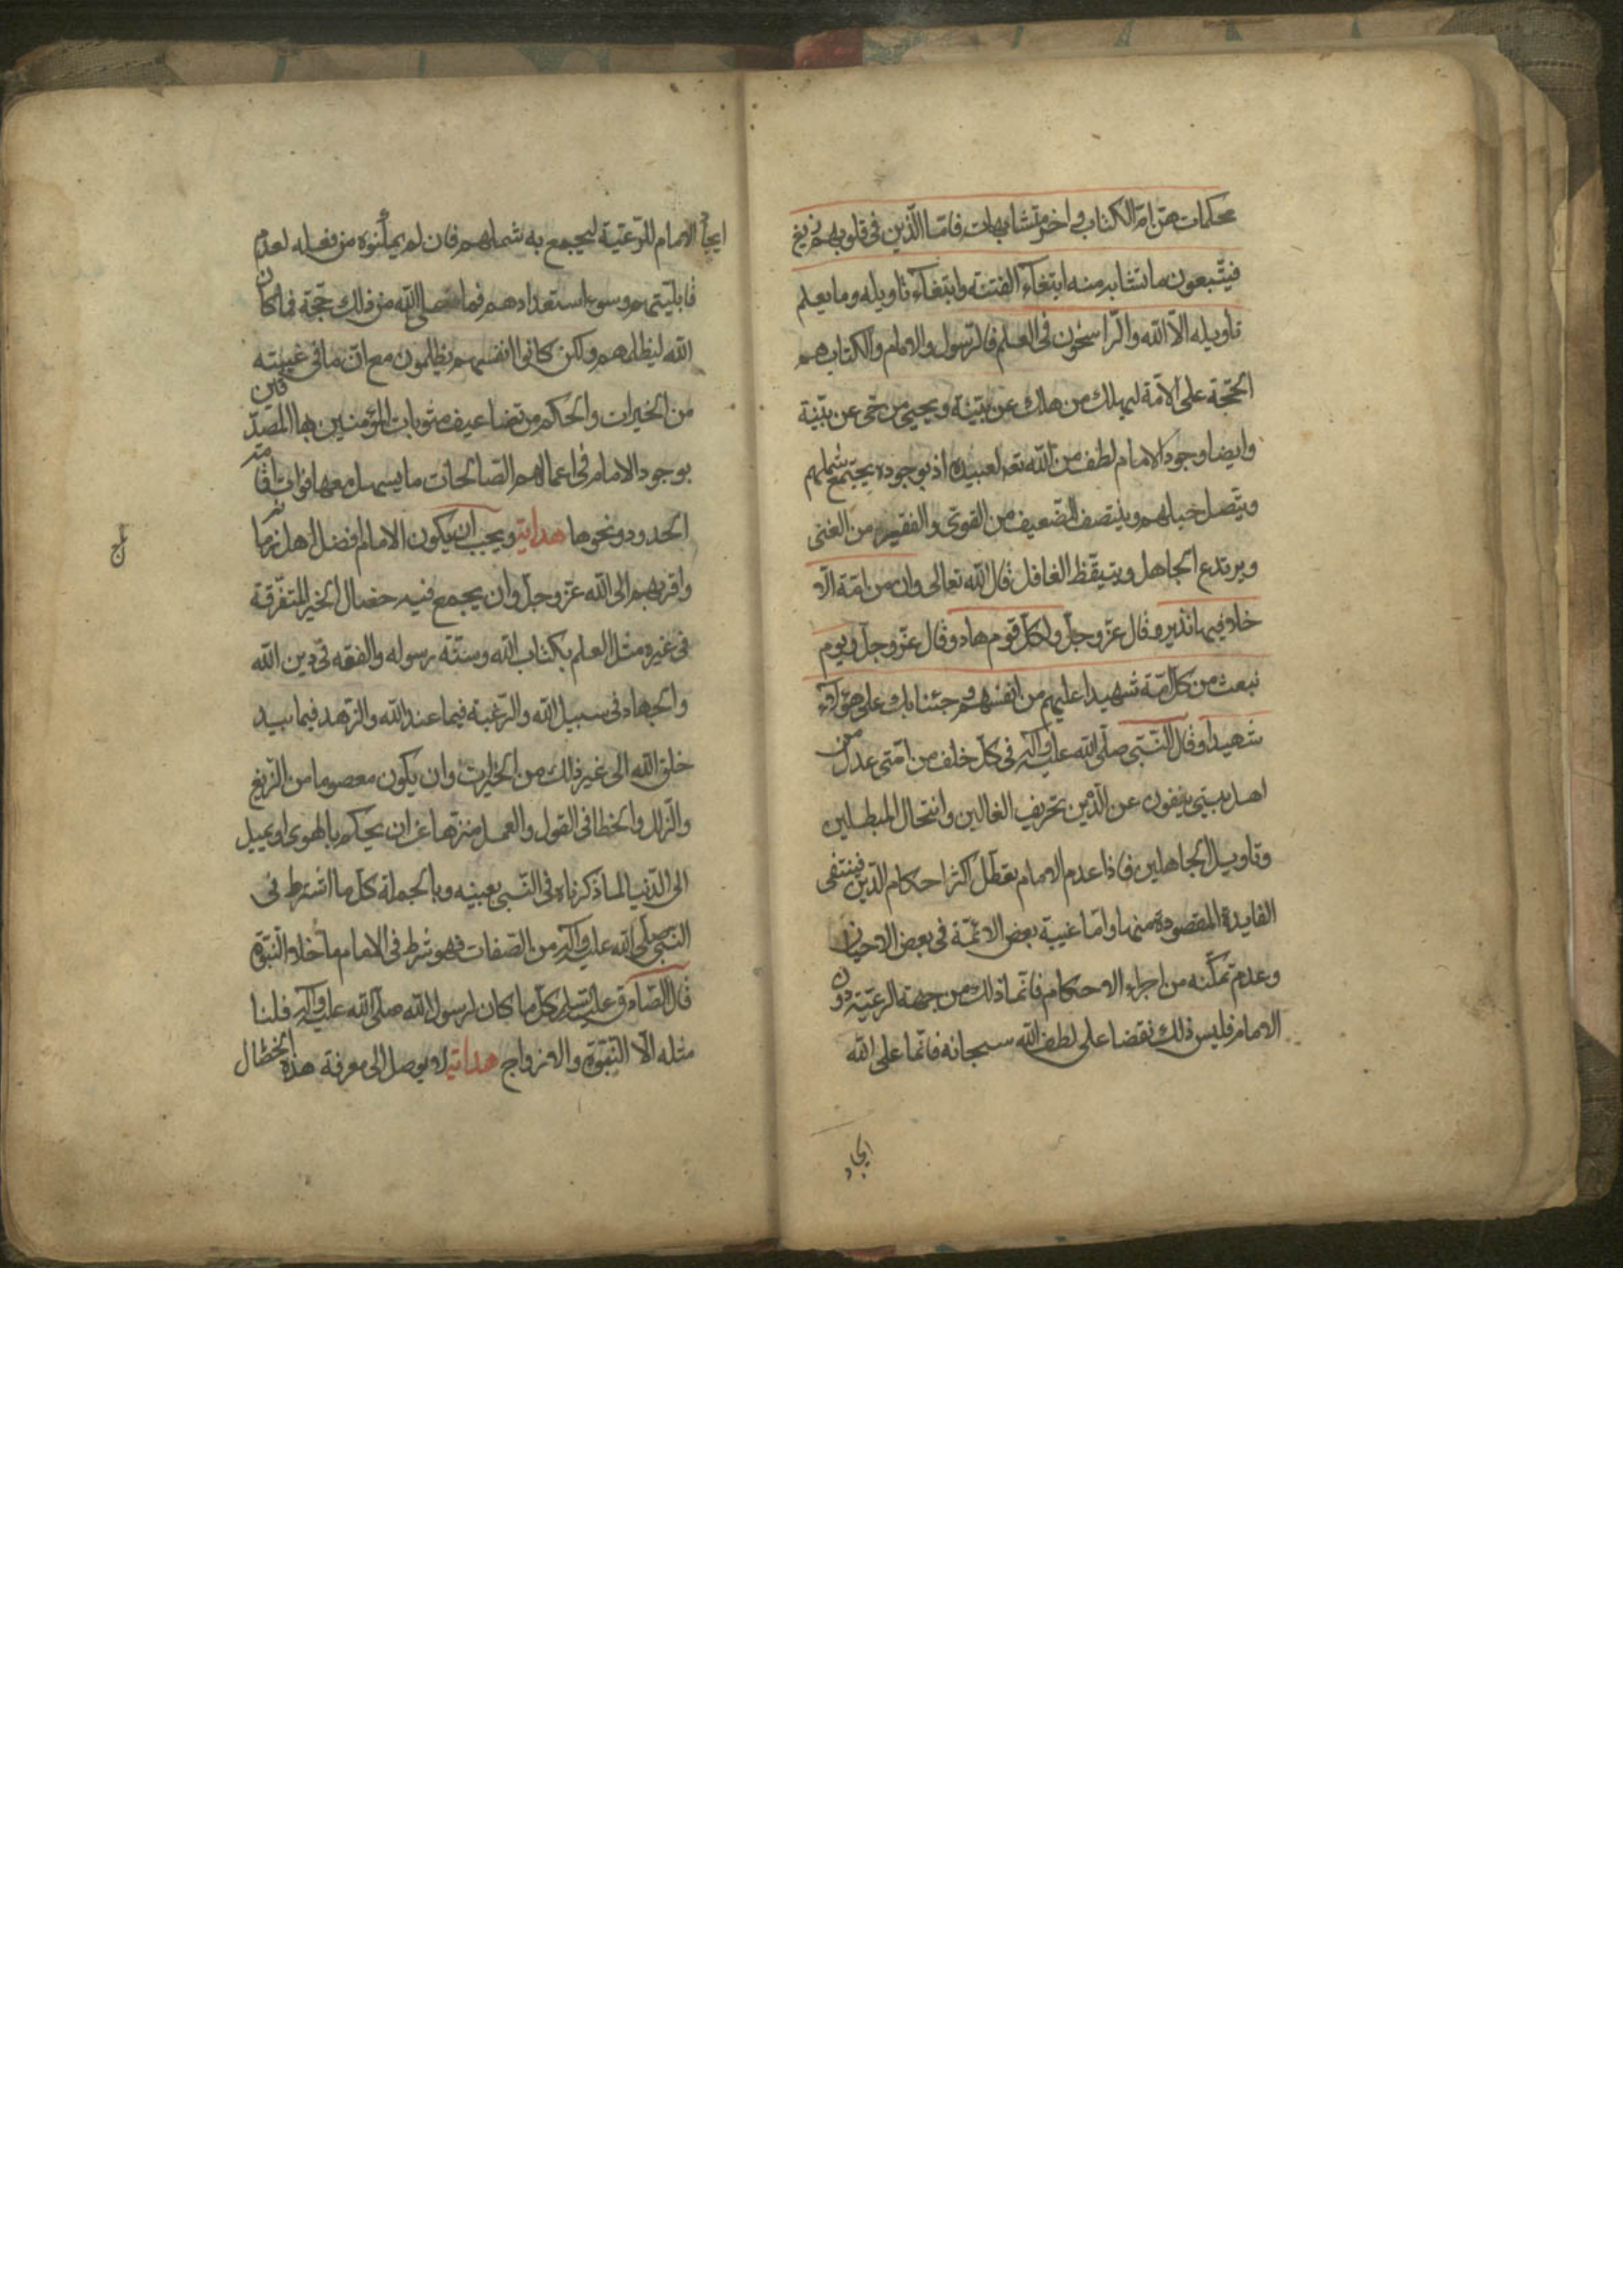 محكمات هنّ امّ الكتاب واخر متشابهات فامّا الّذين فى قلوبهم زيغ
فيتّبعون ما تشابه منه ابتغآء الفتنة وابتغآء تاويله وما يعلم
تاويله الّا الله والرّاسخون فى العلم فالرّسول والامام والكتاب هم
الحجّة على الامّة ليهلك من هلك عن بيّنة ويحيى من حىّ عن بيّنة
وايضا وجود الامام لطف من الله تعـ لعبيده اذ بوجوده يجتمع شملهم
ويتّصل حبلهم وينتصف الضّعيف من القوى والفقير من الغنى
ويرتدع الجاهل ويتيقّظ الغافل قال الله تعالى وان من امّة الّا
خلا فيها نذير وقال عزّ وجلّ ولكلّ قوم هاد وقال عزّ وجلّ ويوم
نبعث من كلّ امّة شهيدا عليهم من انفسهم وجئنا بك على هؤلآء
شهيدا وقال النّبى صلّى الله عليه وآله فى كلّ خلف من امّتى عدل من
اهل بيتى ينفون عن الدّين تحريف الغالين وانتحال المبطلين
وتاويل الجاهلين فاذا عدم الامام تعطّل اكثر احكام الدّين فينتفى
الفايدة المقصودة منها وامّا غيبة بعض الائمّة فى بعض الاحيان
وعدم تمكّنه من اجراء الاحكام فانّما ذلك من جهة الرعيّة دون
الامام فليس ذلك نقضا على لطف الله سبحانه فانّما على الله
ايجاد
ايجاد الامام للرّعيّة ليجمع به شملهم فان لم يمكّنوه من فعله لعدم
قابليّتهم وسوء استعدادهم فما على الله من ذلك حجّة فما كان
الله ليظلمهم ولكن كانوا انفسهم يظلمون مع انّ ما فى غيبته
من الخيرات والحكم من تضاعيف مثوبات المؤمنين بها المصدّقين
بوجود الامام فى اعمالهم الصّالحات ما يسهل معها فوات اقامة
الحدود ونحوها هداية ويجب ان يكون الامام افضل اهل زمانه
واقربهم الى الله عزّ وجلّ وان يجمع فيه خصال الخير المتفرّقة
فى غيره مثل العلم بكتاب الله وسنّة رسوله والفقه فى دين الله
والجهاد فى سبيل الله والرّغبة فيما عند الله والزّهد فيما بيد
خلق الله الى غير ذلك من الخيرات وان يكون معصوما من الزّيغ
والزّلل والخطا فى القول والعمل منزّها عن ان يحكم بالهوى او يميل
الى الدّنيا لما ذكرناه فى النّبى بعينه وبالجملة كلّ ما اشترط فى
النّبى صلّى الله عليه وآله من الصّفات فهو شرط فى الامام ما خلا النّبوّة
قال الصّادق عليه السّلم كلّ ما كان لرسول الله صلّى الله عليه وآله فلنا
مثله الّا النّبوّة والازواج هداية لا يوصل الى معرفة هذه الخصال